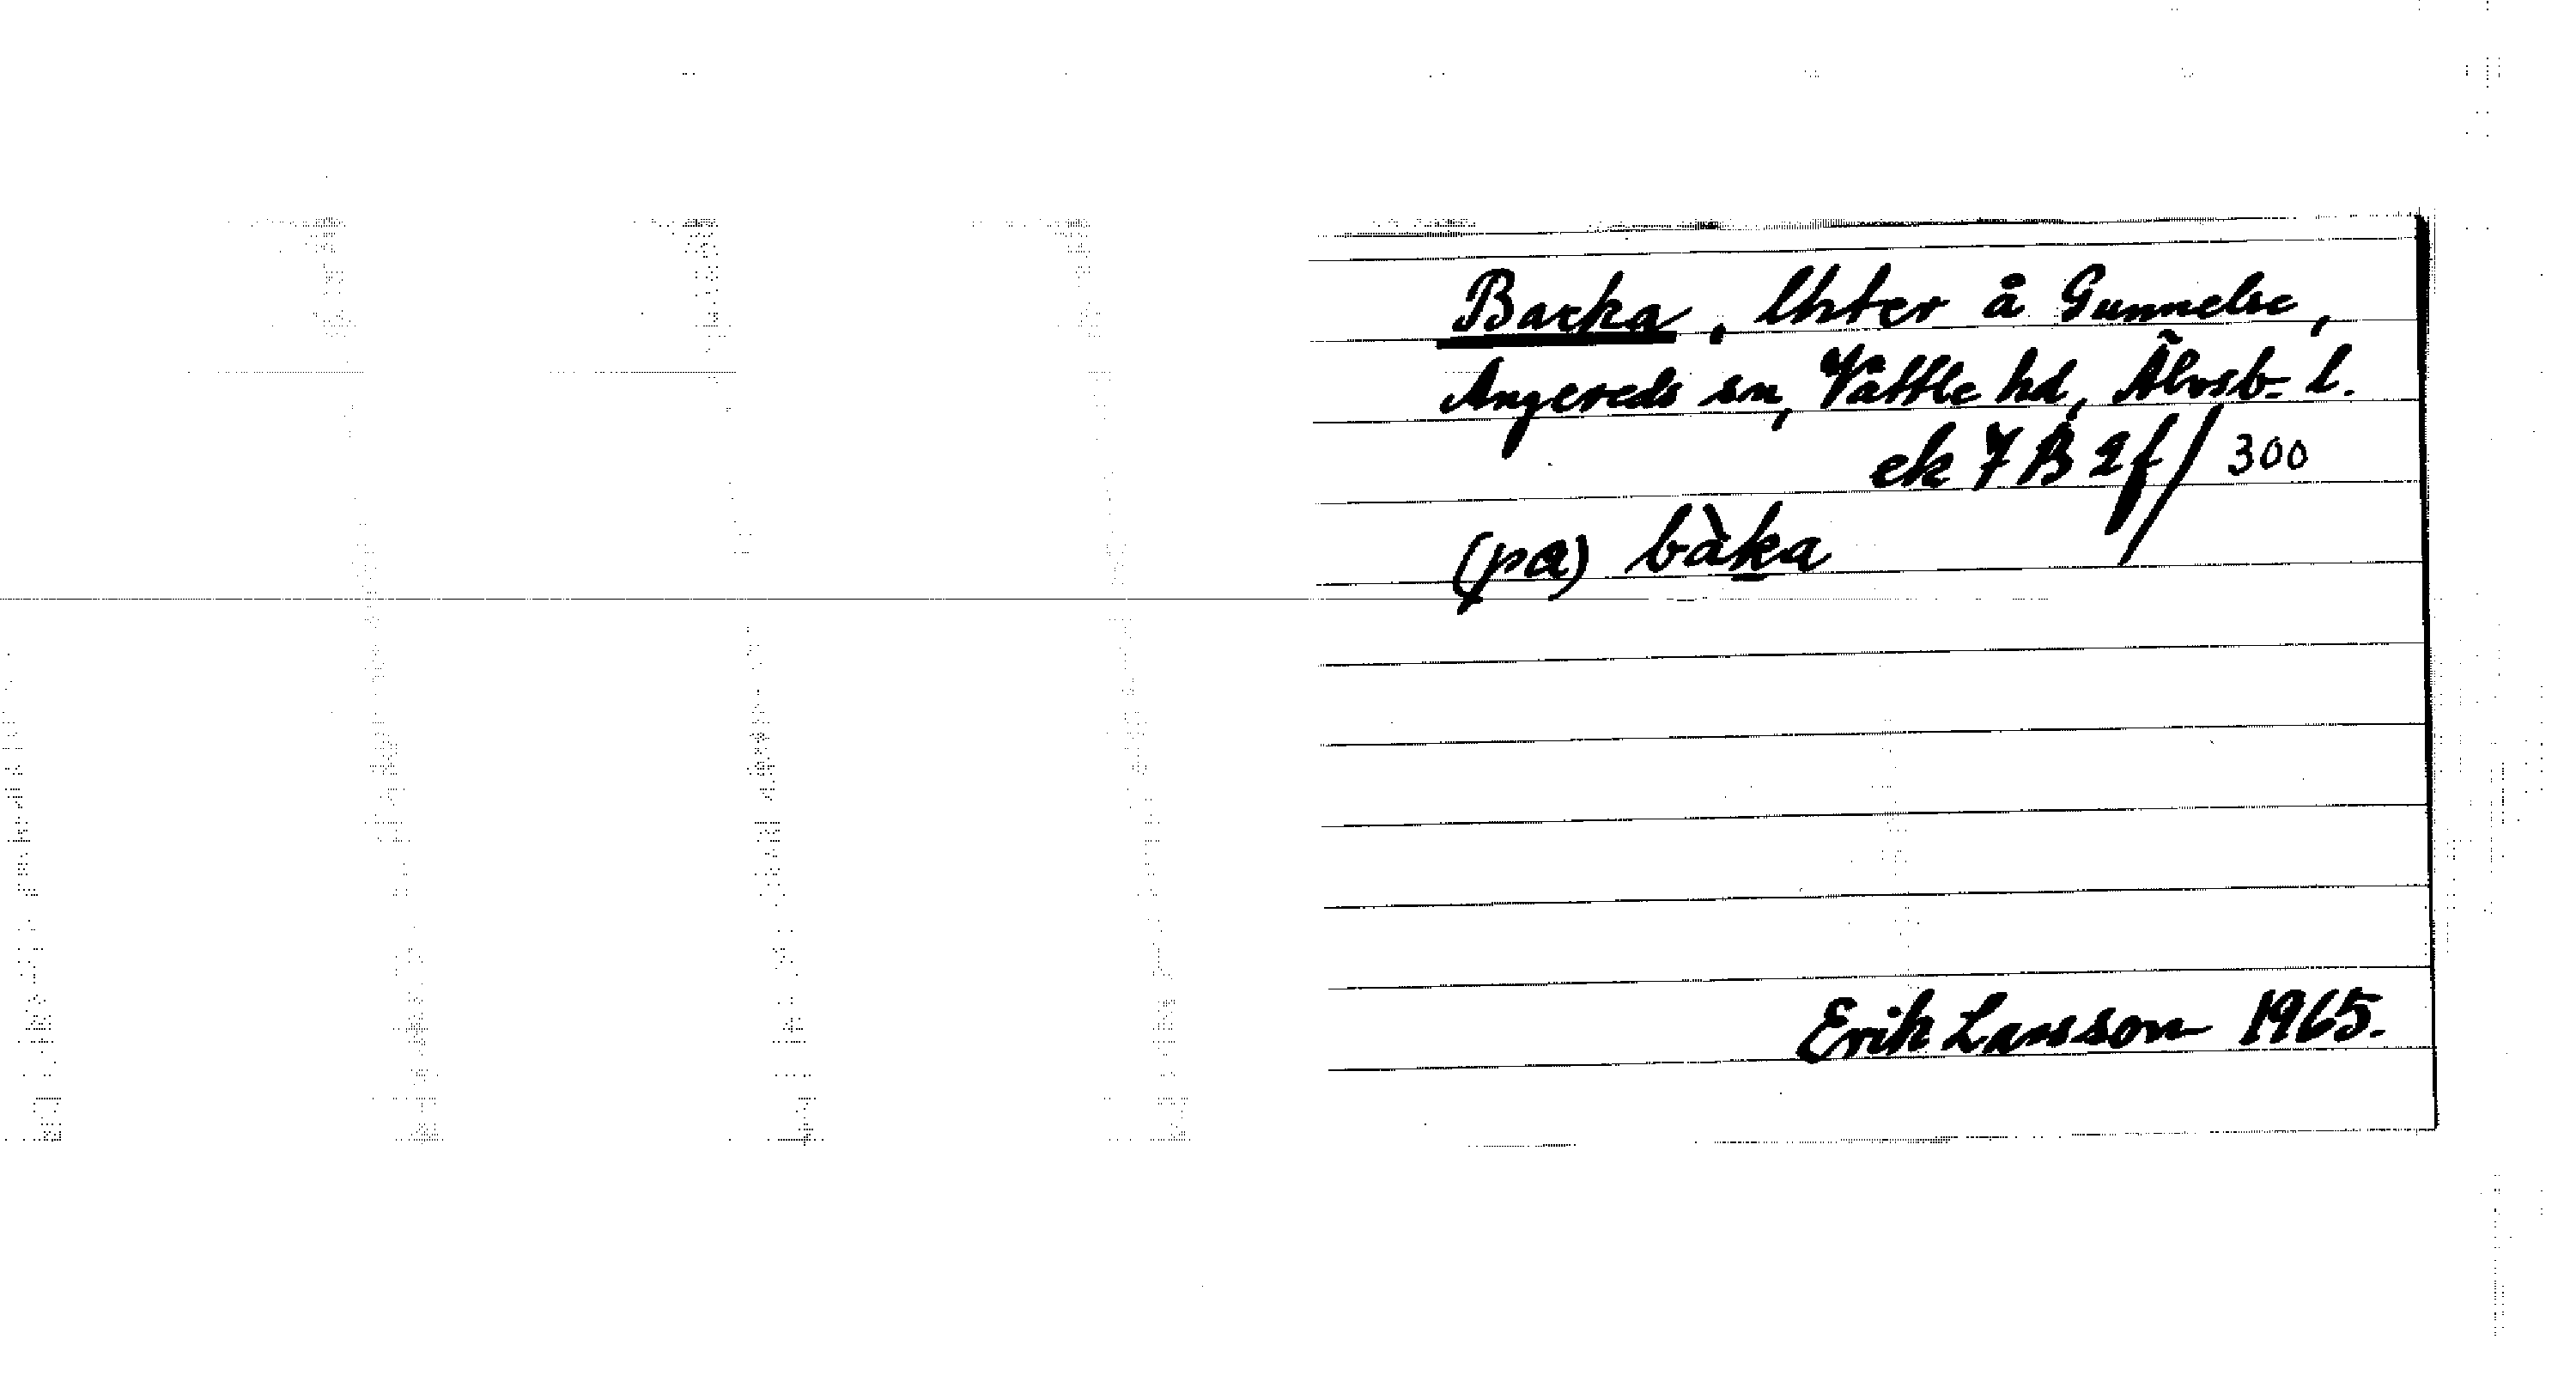 Backa, lht er å Gunnelse,
Angereds sn, Vättle hd, Älvsb. l.
ek 7 B 2f/ 300
(pa) bàka
Erik Larsson 1965.